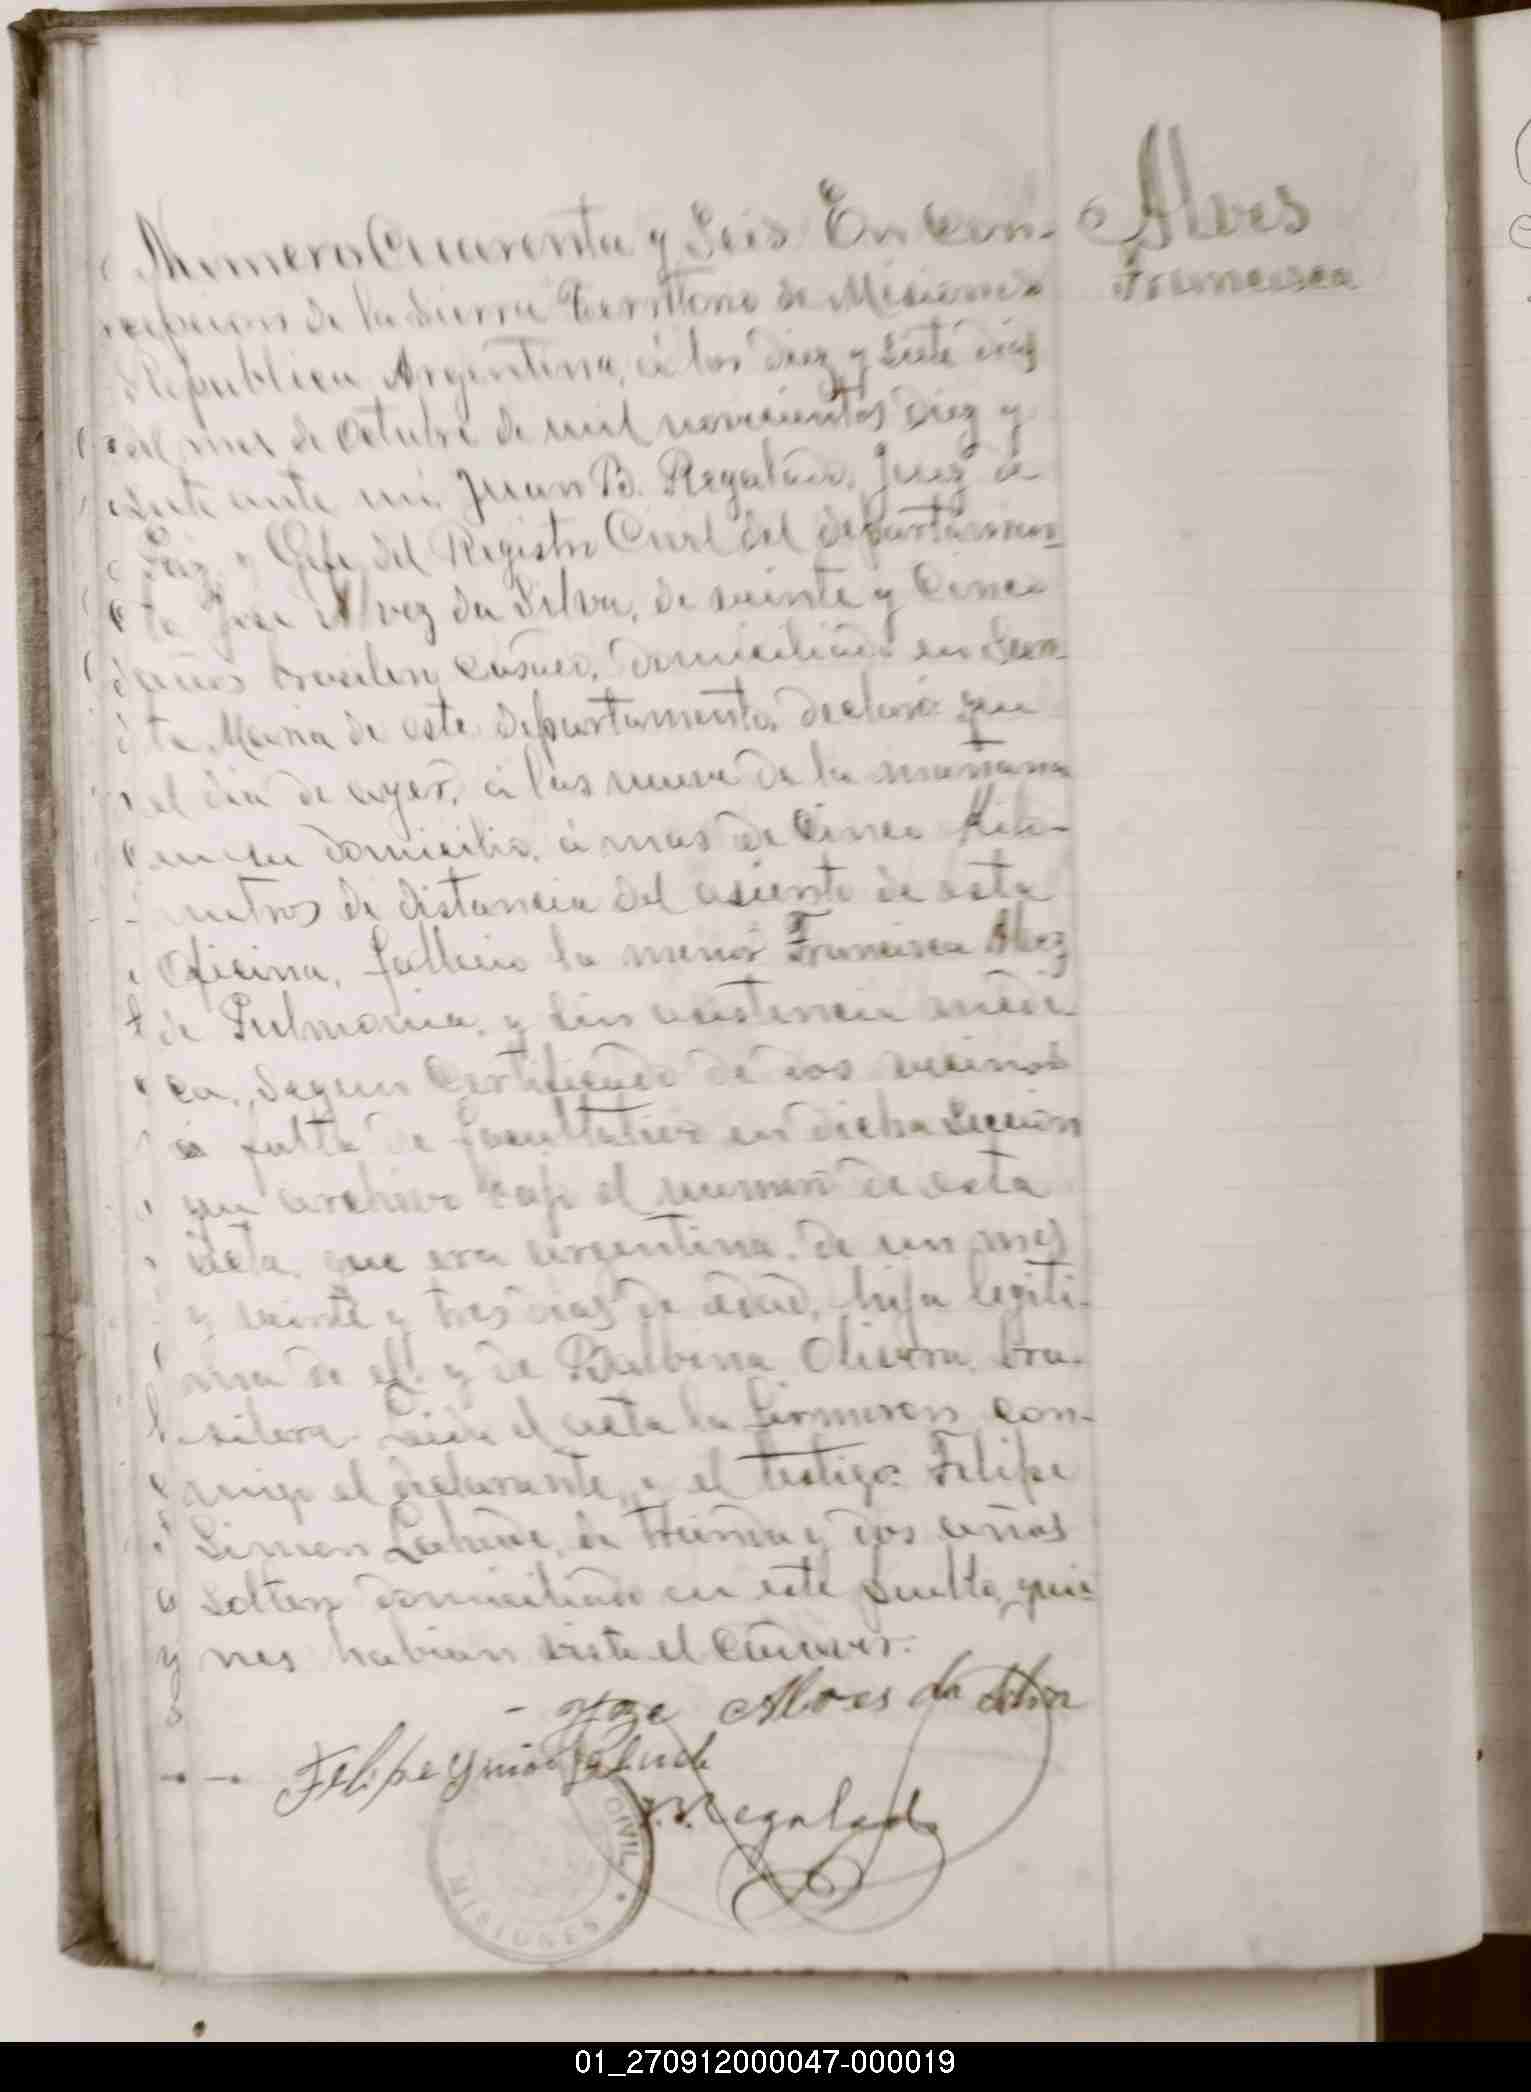 Alves
Francisca
Numero Cuarenta y Seis En Con-
cepcion de la Sierra Territorio de Misiones
Republica Argentina, á los diez y siete dias
del mes de Octubre de mil novecientos diez y
siete ante mi Juan B. Regalado, Juez de
Paz y Gefe del Registro Civil del departamen-
to José Alvez da Silva, de veinte y cinco
años casado, domiciliado en San-
ta Maria de este departamento, declaró que
el dia de ayer, á las nueve de la mañana
en su domicilio, á mas de cinco Kilo-
metros de distancia del asiento de esta
Oficina, falleció la menor Francisca Alvez
de Pulmonia, y sin asistencia medi-
ca, segun Certificado de dos vecinos
á falta de facultativo en dicha Seccion
que archivo bajo el numero de esta
acta, que era argentina, de un mes
y veinte y tres dias de edad, hija legiti-
ma de el y de Balbina Olivera, bra-
silera. Leida el acta la firmaron con-
migo el declarante, y el testigo: Felipe
Simon de treinta y dos años
soltero domiciliado en este pueblo, quie-
nes habian visto el Cadaver.
Jose Alves da Silva
Felipe Simon
J. B. Regalado
CIVIL
MISIONES
01_270912000047-000019